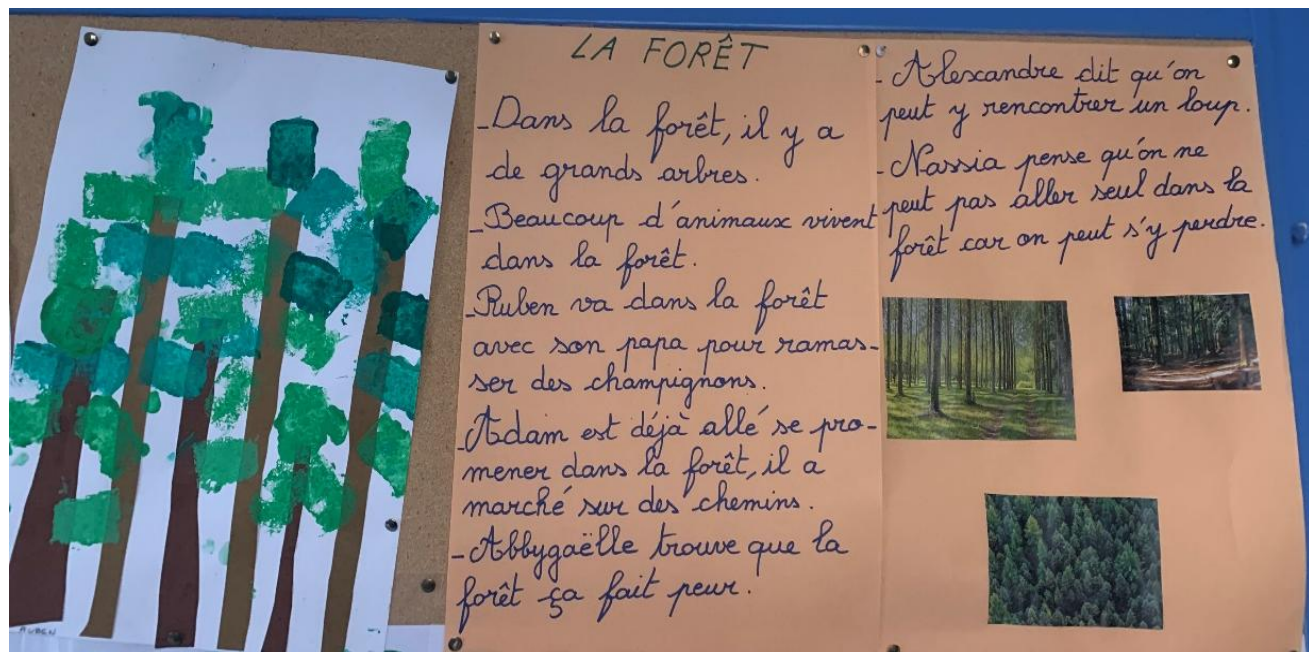 LA FORÊT
_Dans la forêt, il y a
de grands arbres.
_Beaucoup d'animaux vivent
dans la forêt.
_Ruben va dans la forêt
avec son papa pour ramas-
ser des champignons.
_Adam est déjà allé se pro-
mener dans la forêt, il a
marché sur des chemins.
_Abbygaëlle trouve que la
forêt ça fait peur.
_Alexandre dit qu'on
peut y rencontrer un loup.
_Nassia pense qu'on ne
peut pas aller seul dans la
forêt car on peut s'y perdre.
RUBEN